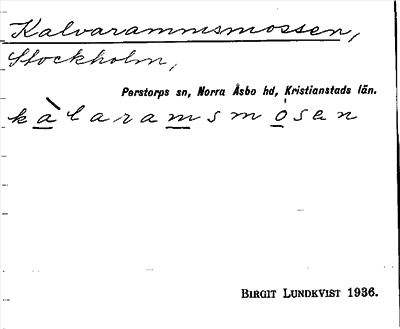 Kalvarammsmossen,
Stockholm,
Perstorps sn, Norra Åsbo hd, Kristianstads län.
kàlaramsmósen
BIRGIT LUNDKVIST 1936.